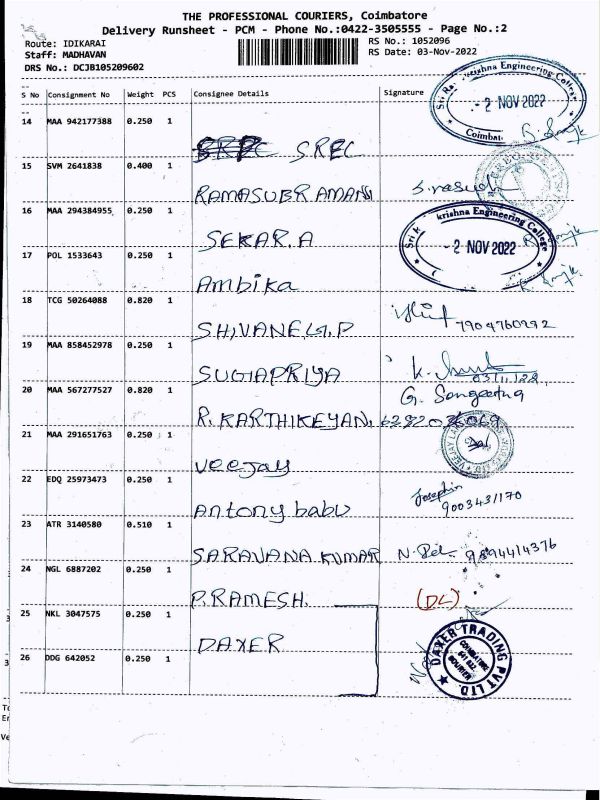 THE PROFESSIONAL COURIERS, Coimbatore
Delivery Runsheet - PCM - Phone No.:0422-3505555 - Page No.:2
Route: IDIKARAI
RS No.: 1052096
Staff: MADHAVAN
RS Date: 03-Nov-2022
DRS No.: DCJB105209602
S No Consignment No Weight PCS Consignee Details Signature
Engineering College
- 2 NOV 2022
14 MAA 942177388 0.250 1
SREC
15 SVM 2641838 0.400 1
RAMASUBRAMANI
16 MAA 294384955 0.250 1
krishna Engineering College
SEKAR.A
- 2 NOV 2022
17 POL 1533643 0.250 1
Ambika
18 TCG 50264088 0.820 1
SHIVANELI.P
7904760992
19 MAA 858452978 0.250 1
SUGIAPRIYA
03/11/22
20 MAA 567277527 0.820 1
G. Sangeetha
R. KARTHIKEYAN.
21 MAA 291651763 0.250 1
veejay
22 EDQ 25973473 0.250 1
Josephin
Antony babu
9003431170
23 ATR 3140580 0.510 1
SARAVANA KUMAR
9894414376
24 NGL 6887202 0.250 1
P.RAMESH.
(DL)
25 NKL 3047575 0.250 1
DAXER
26 DDG 642052 0.250 1
DAXER TRADING PVT LTD.
COIMBATORE
641 022.